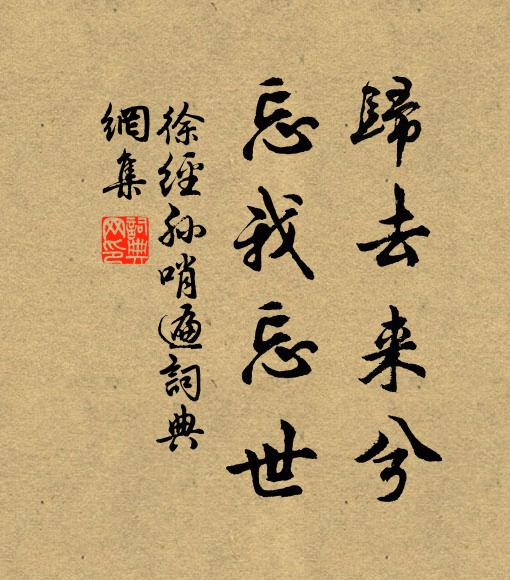 歸去来兮
忘我忘世
徐經孙哨遍詞典
網集
詞典
网印